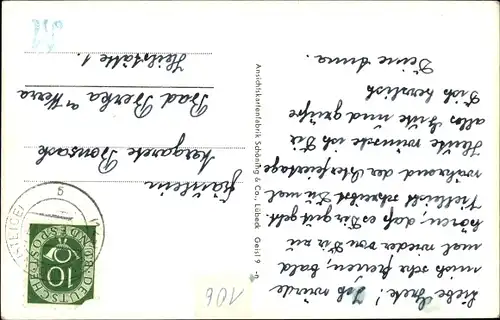 Liebe Gret! Ich würde
mich sehr freuen, bald
mal wieder von Dir zu
hören, daß es Dir gut geht.
Vielleicht schreibst Du mal
während der Osterfeiertage
Heute wünsche ich Dir
alles Gute und grüße
Dich herzlich
Deine Anna.
Ansichtskartenfabrik Schöning & Co., Lübeck Geisl 9 -n
Fräulein
Margarete Bonsack
Bad Berka a/Werra
Heilstätte 1.
DEUTSCHE BUNDESPOST
10
5
106